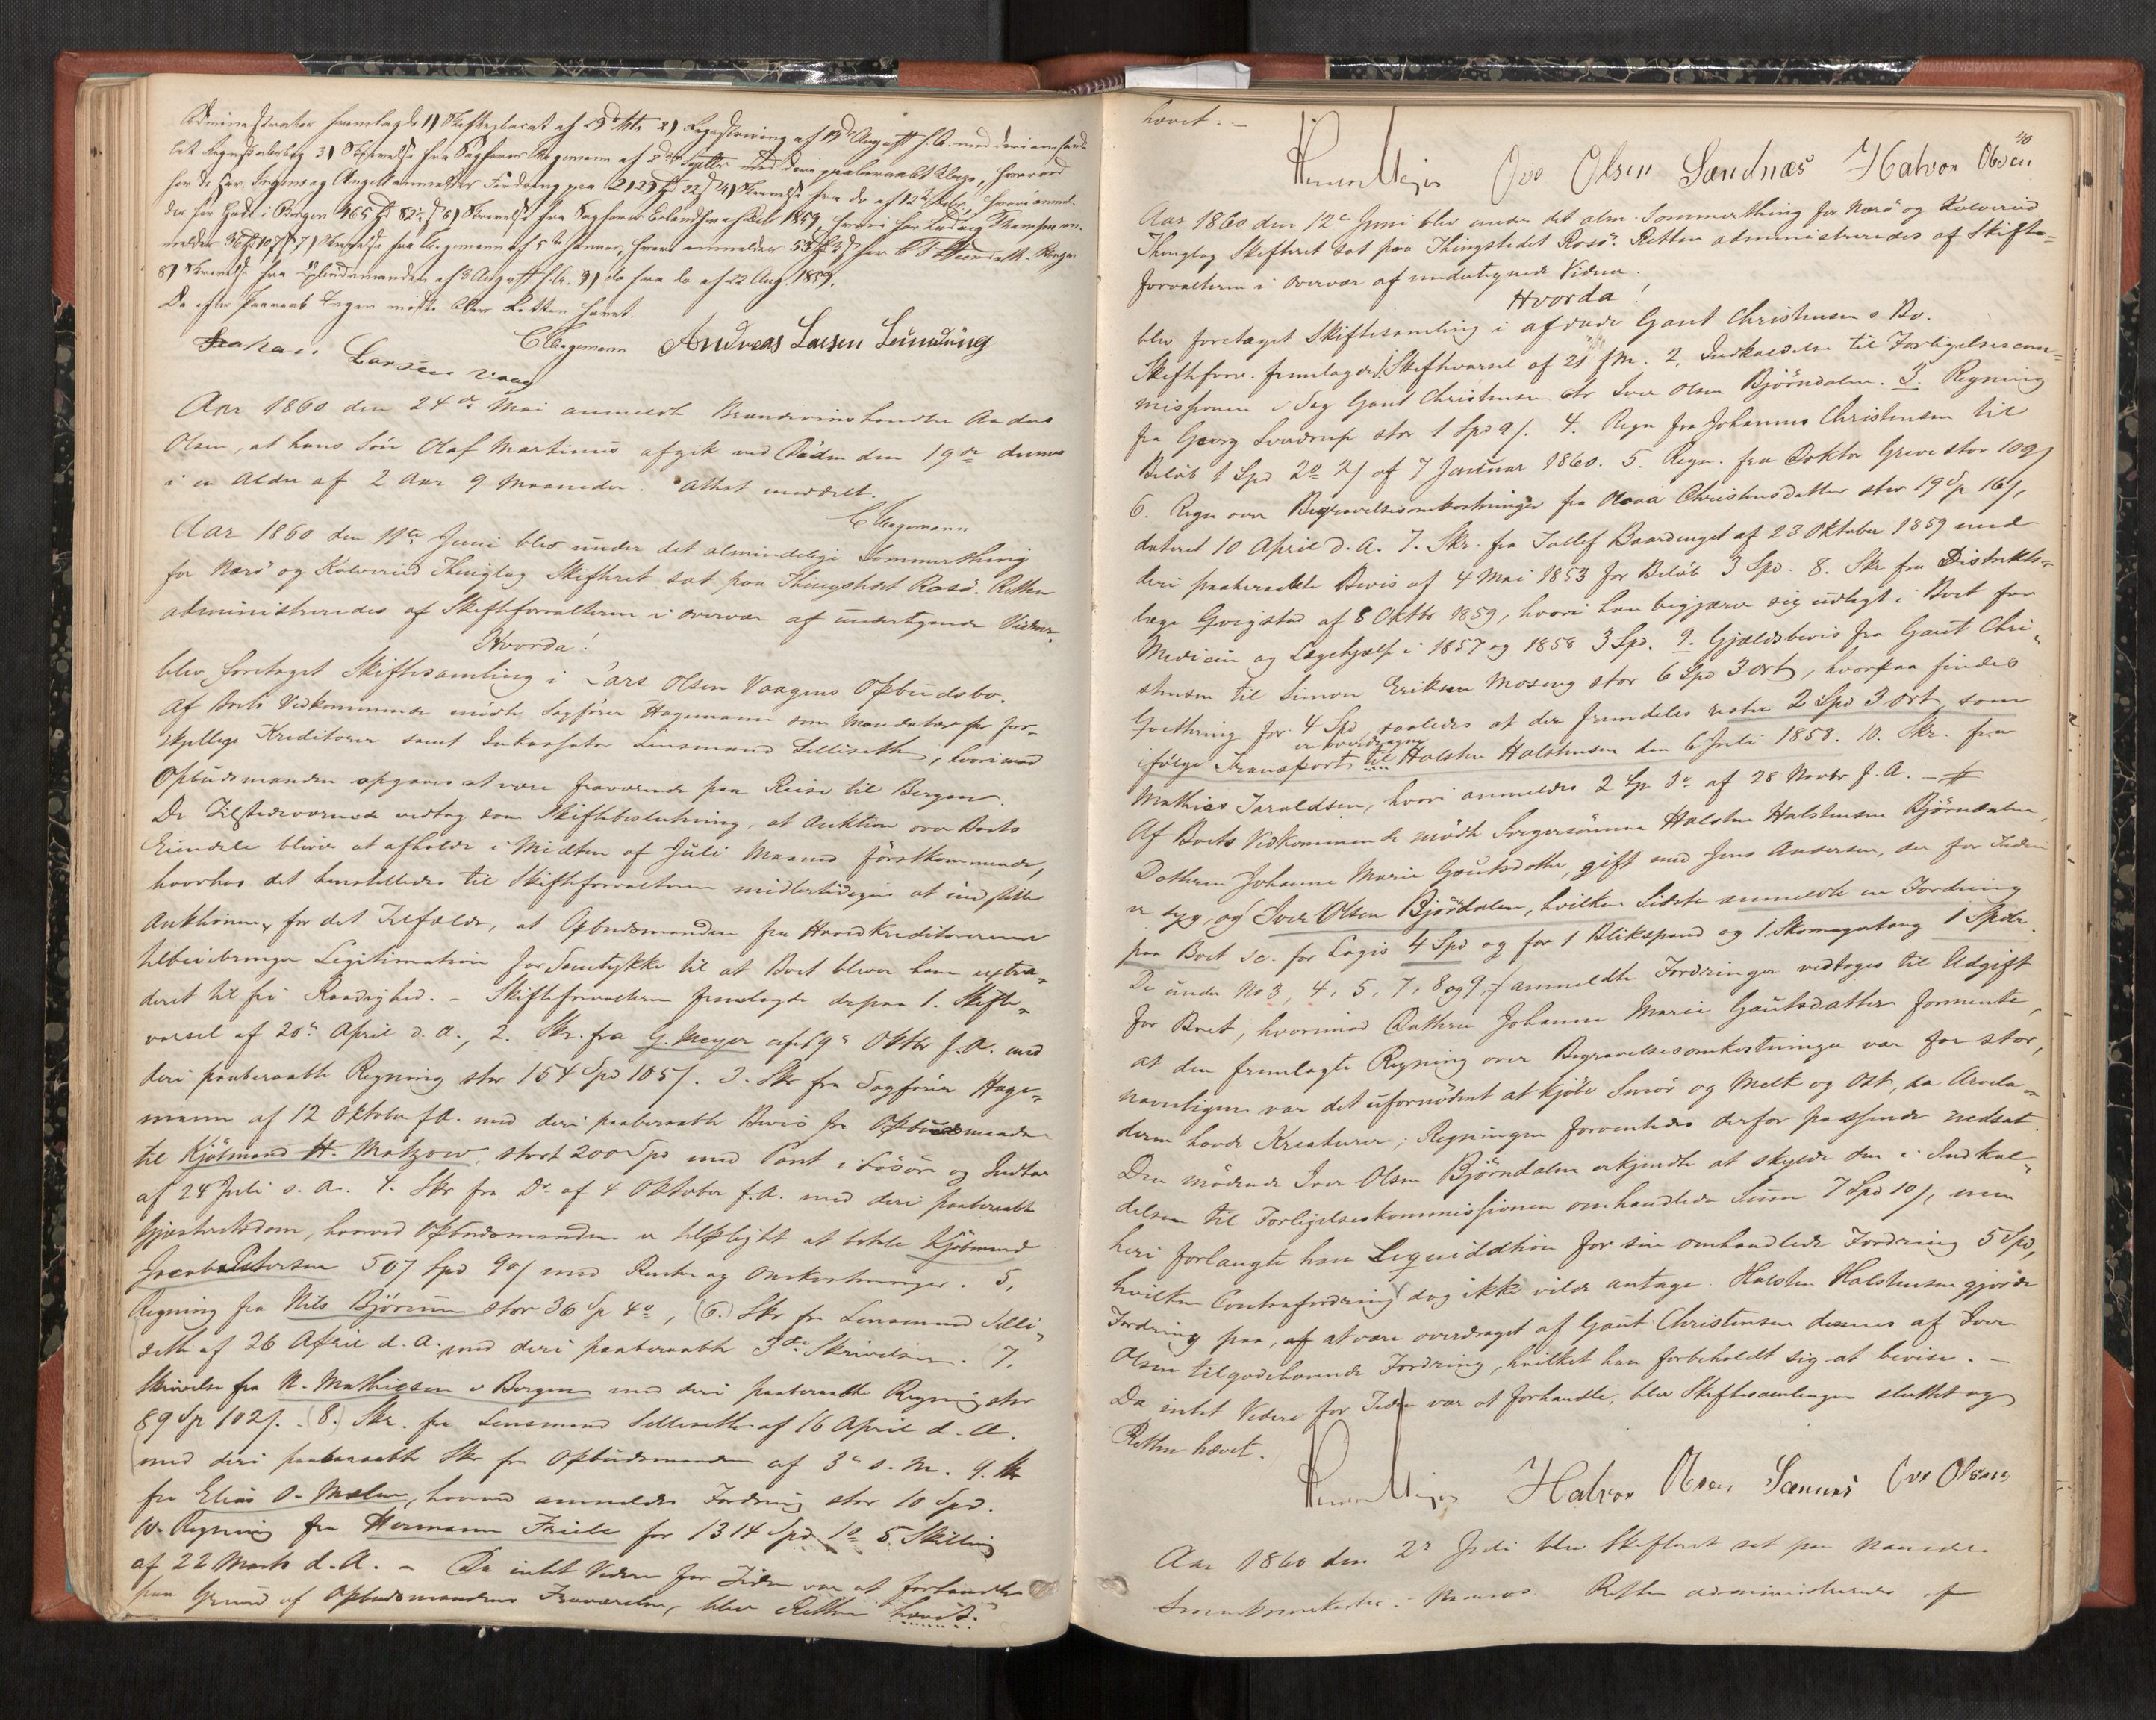 Administrator fremlagde 1) Skifteplacat af 29de 2) Registrering af 19de August f.A. med deri anførte
3) Skrivelse fra Sagfører Hagemann af 2den med deri paaberaabt Klage, hvorved
for de Hrr. Angell anmeldes Fordring paa 2129 22 4) Skrivelse fra do af 12te hvori anmel-
des for i Bergen 465 82 6) Skrivelse fra Sagfører 1859, hvori for Ludvig an-
meldes 36 107 7) Skrivelse fra Hagemann af 5te Januar, hvori anmeldes 53 for C.
8) Skrivelse fra af 3 August f.A. 9) do fra do af 22 Aug. 1859.
Da efter Paaraab Ingen mødte blev Retten hævet.
Larsen Vaag CHagemann Andreas Larsen
Aar 1860 den 24de Mai anmeldte Brændevinshandler
Olsen, at hans Søn Olaf Martinus afgik ved Døden den 19de dennes
i en Alder af 2 Aar 9 Maaneder. Attest meddelt.
CHagemann
Aar 1860 den 11te Juni blev under det almindelige Sommerthing
for Nærø og Kolvereid Thinglag Skifteret sat paa Thingstedet Rosø. Retten
administreredes af Skifteforvalteren i overvær af undertegnede Vidner.
Hvorda!
blev foretaget Skiftesamling i Lars Olsen Vaagens Opbudsbo.
Af Boets Vedkommende mødte Sagfører Hagemann som Mandatar for for-
skjellige Kreditorer samt Inkassator Lensmand Selliseth, hvorimod
Opbudsmanden opgaves at være fraværende paa Reise til Bergen.
De Tilstedeværende vedtog som Skiftebeslutning, at Auktion over Boets
Eiendele bliver at afholde i Midten af Juli Maaned førstkommende,
hvorhos det henstilledes til Skifteforvalteren midlertidigen at indstille
Auktionen, for det Tilfælde, at Opbudsmanden fra Hovedkreditorerne
tilveiebringer Legitimation for Samtykke til at Boet bliver ham extra-
deret til fri Raadighed. - Skifteforvalteren fremlagde derpaa 1. Skifte-
varsel af 20de April d.A., 2. Skr. fra G. Meyer af 19de Oktbr f.A. med
deri paaberaabte Regning stor 154 Spd 105 s. 3. Skr fra Sagfører Hage-
mann af 12 Oktober f.A. med deri paaberaabte Bevis fra Opbudsmanden
til Kjøbmand H. Motzow, stort 200 Spd med Pant i Løsøre og Indbo
af 24 Juli s.A. 4. Skr fra Do af 4 Oktober f.A. med deri paaberaabte
Gjesteretsdom, hvorved Opbudsmanden er tilpligtet at betale Kjøbmand
Jacob Petersen 507 Spd 90 s med Renter og Omkostninger. 5,
Regning fra Nils Bjørum stor 36 Sp 4 o, (6.) Skr fra Lensmand Selli-
seth af 26 April d.A. med deri paaberaabte 3de Skrivelser. (7.
Skrivelse fra N. Mathiesen i Bergen med deri paaberaabte Regning stor
89 Sp 102 s. (8.) Skr. fra Lensmand Selliseth af 16 April d.A.
med deri paaberaabte Skr fra Opbudsmanden af 3de s.M. 9. Skr
fra Elias O. Moelun, hvorved anmeldes Fordring stor 10 Spd.
10. Regning fra Hermann Friele for 1314 Spd 1 o 5 Skilling
af 22 Marts d.A. - Da intet Videre for Tiden var at forhandle
paa Grund af Opbudsmandens Fraværelse, blev Retten hævet.
hævet.-
40
Ove Olsen Sandnæs Halvor Olsen
Aar 1860 den 12te Juni blev under det alm. Sommerthing for Nærø og Kolvereid
Thinglag Skifteret sat paa Thingstedet Rosø. Retten administreredes af Skifte-
forvalteren i overvær af undertegnede Vidner.
Hvorda!
blev foretaget Skiftesamling i afdøde Gaut Christensens Bo.
Skifteforv. fremlagde 1. Skiftevarsel af 21 f.M. 2. Indkaldelse til Forligelsescom-
missionen i Sag Gaut Christensen ctr Iver Olsen Bjørndalen. 3. Regning
fra Georg Sverdrup stor 1 Spd 9 s. 4. Regn fra Johannes Christensen til
Beløb 1 Spd 2 o 2 s af 7 Januar 1860. 5. Regn. fra Doktor Greve stor 109 s
6. Regn over Begravelsesomkostninger fra Olava Christensdatter stor 19 Sp 16 s,
dateret 10 April d.A. 7. Skr. fra Tollef Baardenget af 23 Oktober 1859 med
deri paaberaabte Bevis af 4 Mai 1853 for Beløb 3 Spd. 8. Skr fra Distrikts-
læge Qvigstad af 8 Oktbr 1859, hvori han begjærer sig udlagt i Boet for
Medicin og Lægehjælp i 1857 og 1858 3 Spd. 9. Gjældsbevis fra Gaut Chri-
stensen til Simon Eriksen Moseng stor 6 Spd 3 ort, hvorpaa findes
Qvittering for 4 Spd saaledes at der fremdeles restere 2 Spd 3 ort som
ifølge Transport er overdragen til Halsten Halstensen den 6 Juli 1858. 10. Skr. fra
Mathias Taraldsen, hvori anmeldes 2 Sp 3 o af 28 Novbr f.A. -
Af Boets Vedkommende mødte Svigersønnen Halsten Halstensen Bjørndalen,
Datteren Johanne Marie Gautsdatter, gift med Jens Andersen, der for Tiden
er syg, og Iver Olsen Bjørdalen, hvilken Sidste anmeldte en Fordring
paa Boet sc. for Logis 4 Spd og for 1 Blikspand og 1 Skomagertang 1 Spdr.
De under No 3, 4, 5, 7, 8 og 9, anmeldte Fordringer vedtoges til Udgift
for Boet, hvorimod Datteren Johanne Marie Gautsdatter formente,
at den fremlagte Regning over Begravelsesomkostninger var for stor,
navnligen var det ufornødent at kjøbe Smør og Melk og Ost, da Arvela-
deren havde Kreaturer; Regningen forventedes derfor passende nedsat.
Den mødende Iver Olsen Bjørndalen erkjendte at skylde den i Indkal-
delsen til Forligelseskommissionen omhandlede Sum 7 Spd 10 s, men
heri forlangte han Liquidation for sin omhandlede Fordring 5 Spd,
hvilken Contrafordring dog ikke vilde antage. Halsten Halstensen gjorde
Fordring paa, af at være overdraget af Gaut Christensen dennes af Iver
Olsen tilgodehavende Fordring, hvilket han forbeholdt sig at bevise. -
Da intet Videre for Tiden var at forhandle, blev Skiftesamlingen sluttet og
Retten hævet.
Halvor Olsen Sannes Ove Olsen
Aar 1860 den 2de Juli blev Skifteret sat paa
i Retten administreredes af